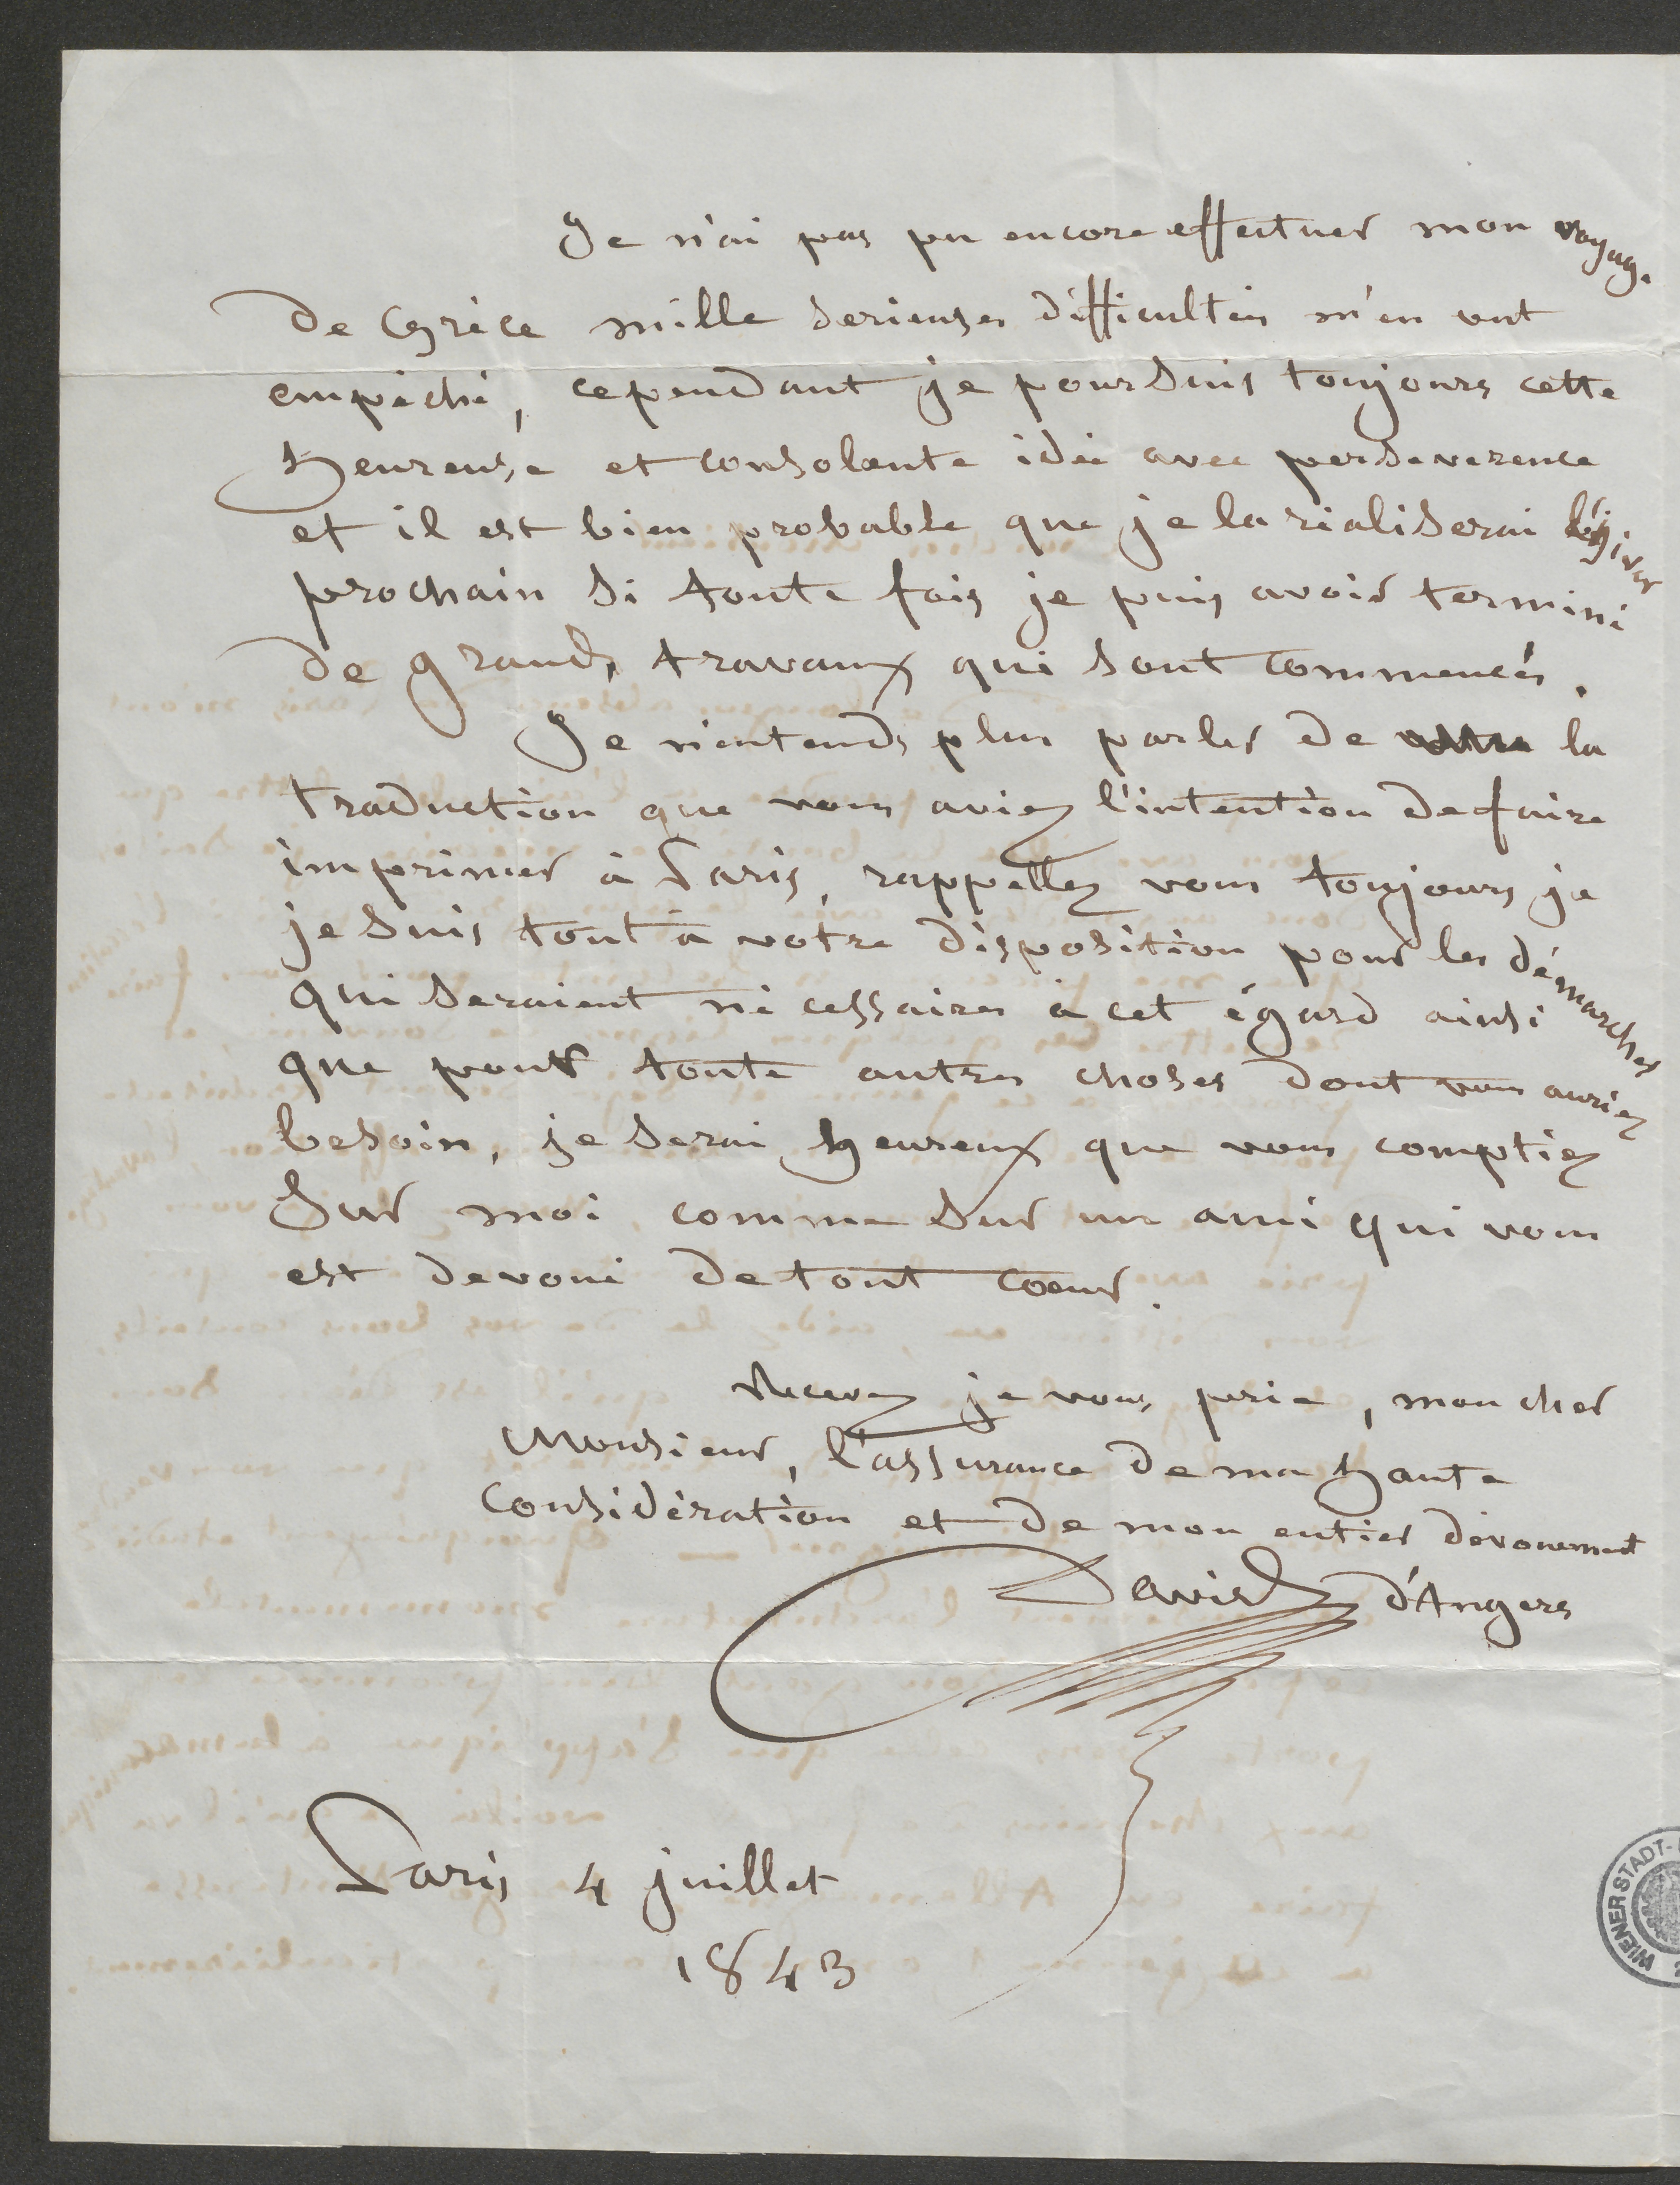 Je n'ai pas pu encore effectuer mon voyage
de Grèce mille serieuses difficultés m'en ont
empéché, cependant je poursuis toujours cette
heureuse et consolante idée avec perseverence
et il est bien probable que je la réaliserai l'hiver
prochain si toute fois je puis avoir terminé
de grands travaux qui sont commencés.
Je n'entends plus parler de la
traduction que vous aviez l'intention de faire
imprimer à Paris, rappellez vous toujours je
je suis tout à votre disposition pour les démarches
qui seraient nécessaires à cet égard ainsi
que pour toute autres choses dont vous auriez
besoin, je serai heureux que vous comptiez
sur moi comme sur un ami qui vous
est devoué de tout cœur.
Recevez je vous prie, mon cher
Monsieur, l'assurance de ma haute
considération et de mon entier dévouement
David d'Angers
Paris 4 juillet
1843
WIENER STADT-